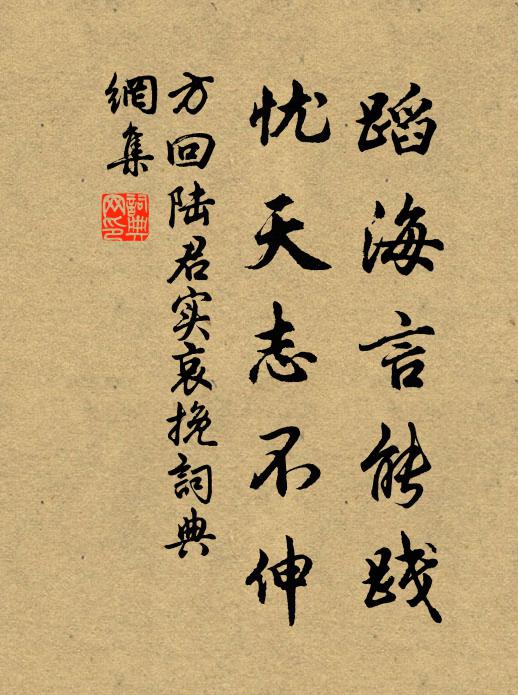 蹈海言能践
忧天志不伸
方回陆君实哀挽詞典
網集
詞典網印